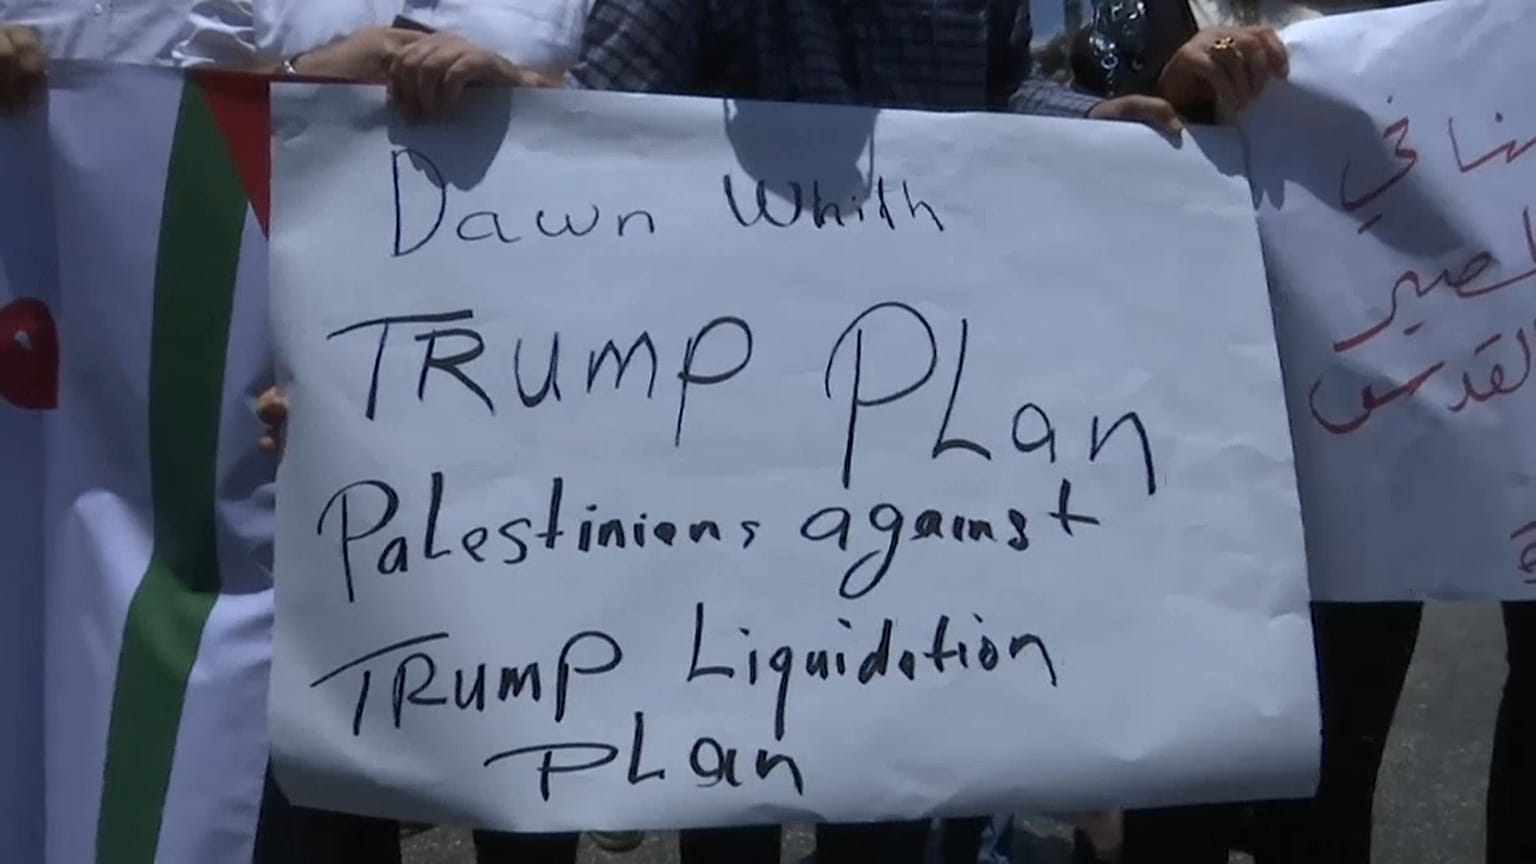 Dawn Whith
TRUMP PLan
Palestinians against
TRump Liquidation
PLan
في
القدس